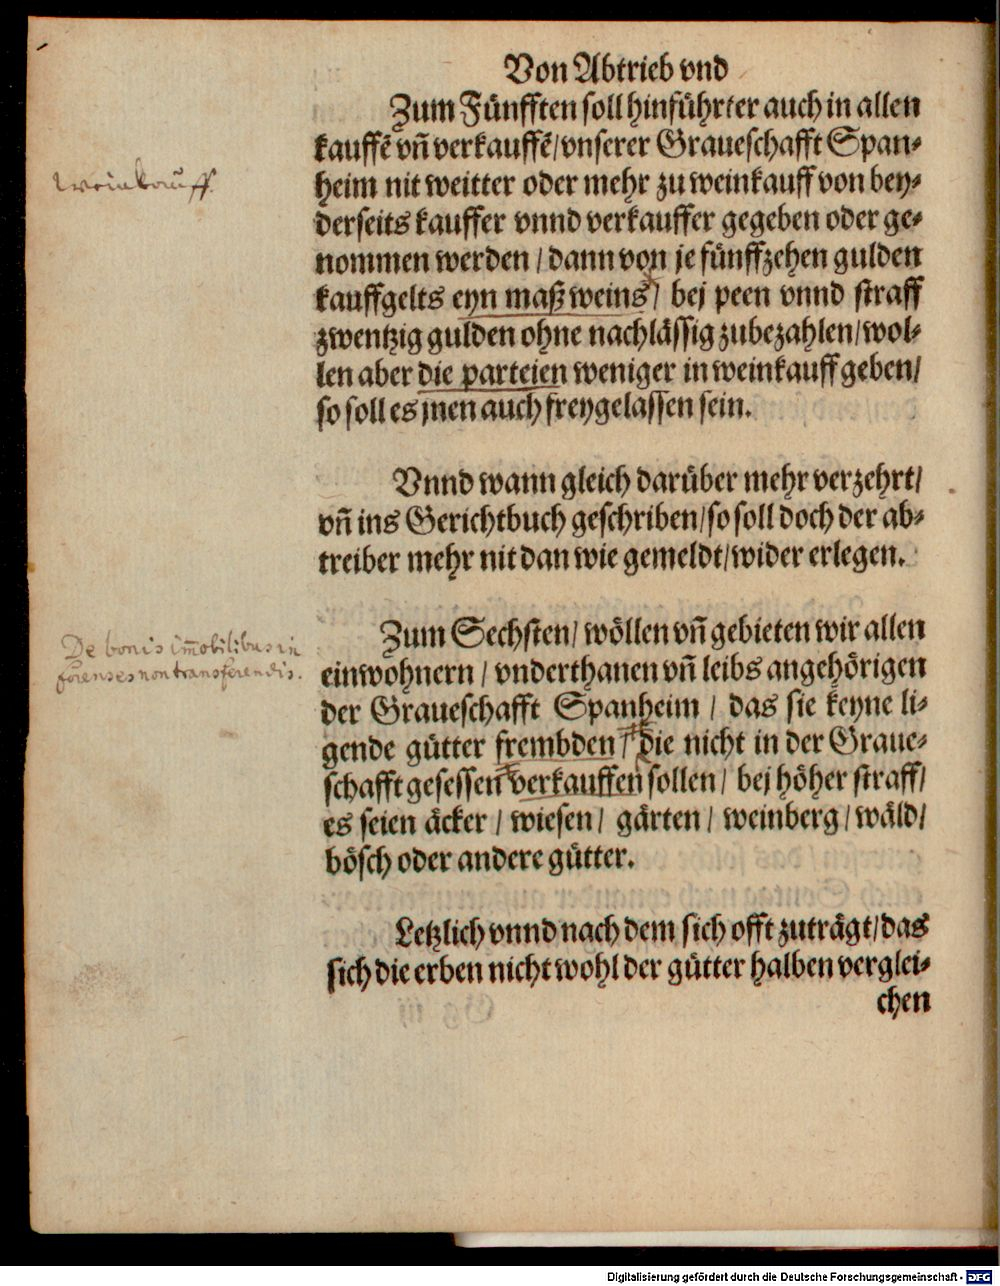 Von Abtrieb vnd
Zum Fünfften soll hinführter auch in allen
kauffē vñ verkauffē/vnserer Graueschafft Span-
weinkauff
heim nit weitter oder mehr zu weinkauff von bey-
derseits kauffer vnnd verkauffer gegeben oder ge-
nommen werden / dann von je fünffzehen gulden
kauffgelts eyn maß weins/ bej peen vnnd straff
zwentzig gulden ohne nachlässig zubezahlen/wol-
len aber die parteien weniger in weinkauff geben/
so soll es jnen auch freygelassen sein.
Vnnd wann gleich darüber mehr verzehrt/
vñ ins Gerichtbuch geschriben/so soll doch der ab-
treiber mehr nit dan wie gemeldt/wider erlegen.
De bonis im̄obilibus in
forenses non transferendis.
Zum Sechsten/ wöllen vñ gebieten wir allen
einwohnern / vnderthanen vñ leibs angehörigen
der Graueschafft Spanheim / das sie keyne li-
gende gütter frembden / die nicht in der Graue-
schafft gesessen verkauffen sollen/ bej höher straff/
es seien äcker / wiesen/ gärten/ weinberg/wäld/
bösch oder andere gütter.
Letzlich vnnd nach dem sich offt zuträgt/das
sich die erben nicht wohl der gütter halben verglei-
chen
Digitalisierung gefördert durch die Deutsche Forschungsgemeinschaft - DFG